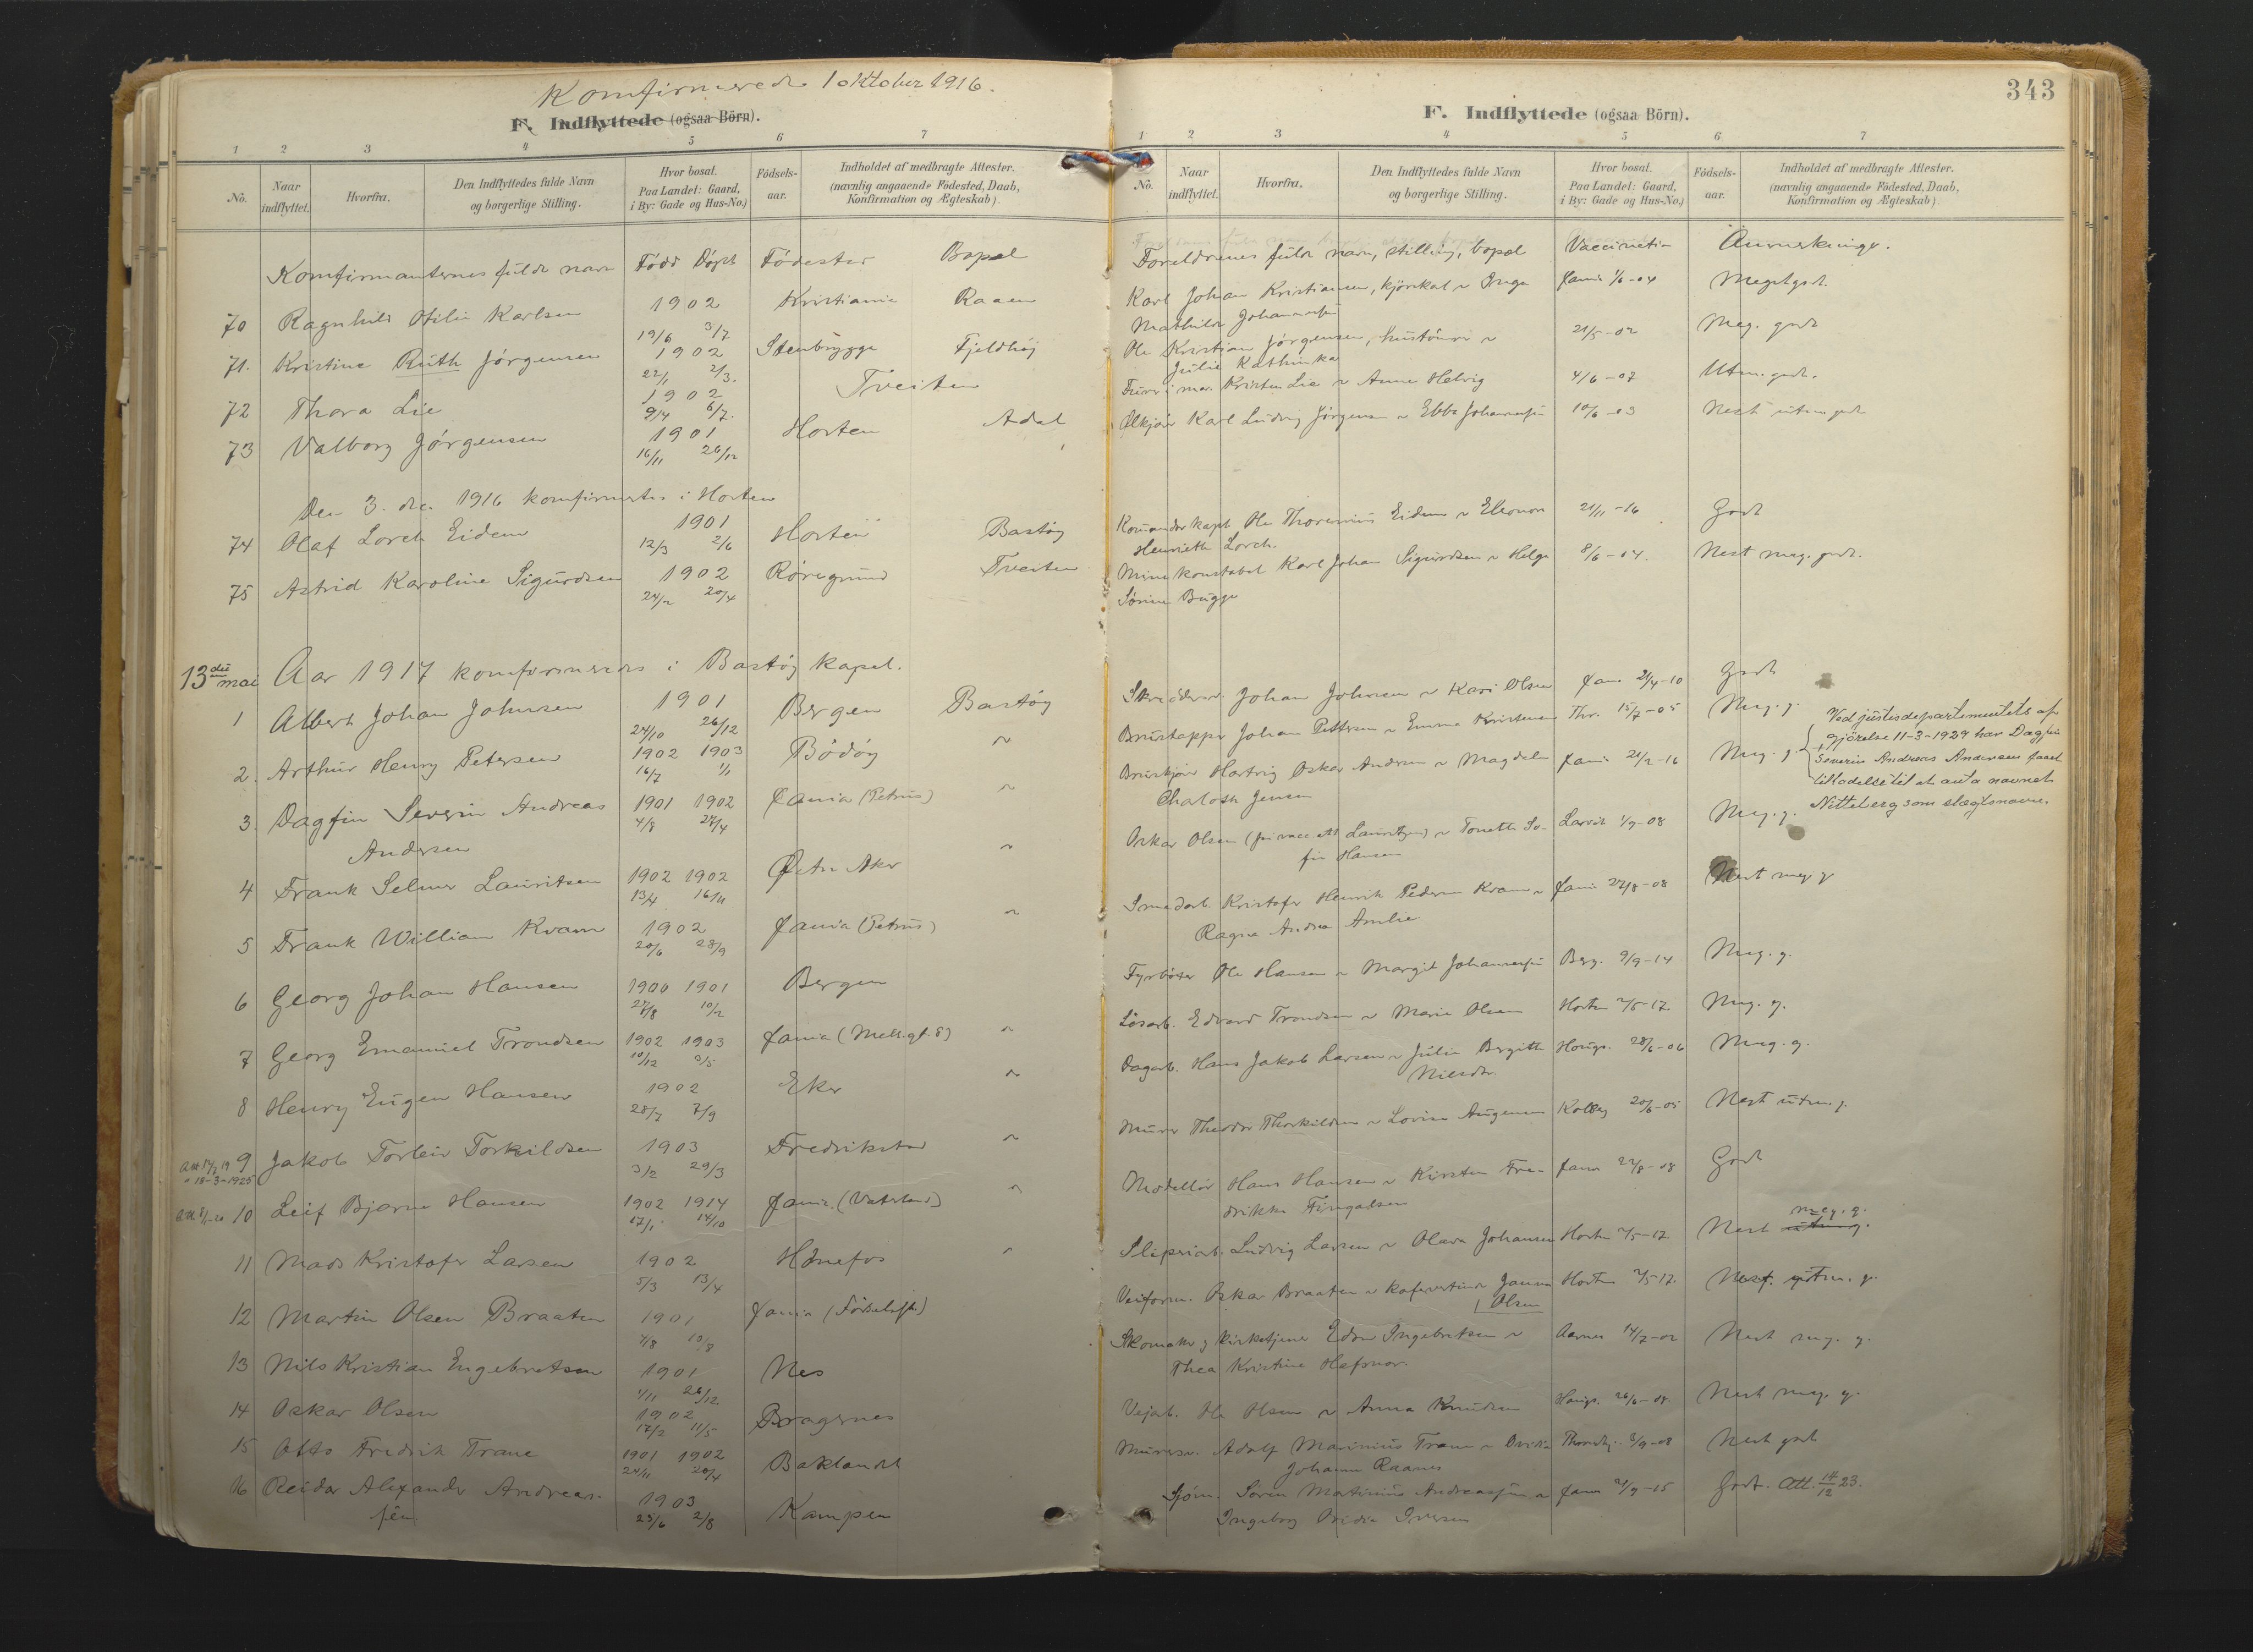 Komfirmerede 1 oktober 1916.
F. Indflyttede (ogsaa Börn).
1 2 3 4 5 6 7
No.
Naar indflyttet.
Hvorfra.
Den Indflyttedes fulde Navn og borgerlige Stilling.
Hvor bosat. Paa Landet: Gaard, i By: Gade og Hus-No.)
Födsels-aar.
Indholdet af medbragte Attester. (navnlig angaaende Födested, Daab, Konfirmation og Ægteskab)
Komfirmanternes fulde navn Född Döpt Födested Bopæl
70 Ragnhild Otilie Karlsen 1902 19/6 3/7 Kristiania Raaen
71. Kristine Ruth Jörgensen 1902 22/1 2/3. Stenbrygga Fjeldhöj
72 Thora Lie 1902 9/4 6/7. Tveiten
73 Valborg Jörgensen 1901 16/11 26/12 Horten Adal
Den 3. dec. 1916 komfirmertes i Horten
74 Olaf Lorch Eidem 1901 12/3 2/6 Horten Bastöy
75 Astrid Karoline Sigurdsen 1902 24/2 20/4 Röregrund Tveiten
13 de mai Aar 1917 komfirmeres i Bastöy kapel.
1 Albert Johan Johnsen 1901 24/10 26/12 Bergen Bastöy
2. Arthur Henry Petersen 1902 1903 16/7 1/1 Bödöy "
3. Dagfin Severin Andreas 1901 1902 4/8 27/4 Xania (Petrus) "
Andersen
4 Frank Selmer Lauritsen 1902 1902 13/4 16/11 Østre Aker "
5 Frank William Kvam 1902 20/6 28/9 Xania (Petrus) "
6 Georg Johan Hansen 1900 1901 27/8 10/2 Bergen
7 Georg Emanuel Trondsen 1902 1903 10/12 3/5 Xania (Mells.gt. 8) "
8 Henry Eugen Hansen 1902 28/7 7/9 Eker "
9 Jakob Torleiv Torkildsen 1903 3/2 29/3 Fredrikstad "
" 18-3-1925
10 Leif Bjarne Hansen 1902 1914 17/1 14/10 Xania. (Vaterland) "
11 Mads Kristofer Larsen 1902 5/3 13/4 Hönefos "
12 Martin Olsen Braaten 1901 Xania (Födselsst.)
13 Nils Kristian Engebretsen 1901 1/11 26/12 Nes
14 Oskar Olsen 1902 17/2 11/5 Bragernes
15 Otto Fredrik Trane 1901 1902 24/11 20/4 Baklandet
16 Reidar Alexander Andreas- 1903 23/6 2/8 Kampen
sen.
343
F. Indflyttede (ogsaa Börn).
1 2 3 4 5 6 7
No.
Naar indflyttet.
Hvorfra.
Den Indflyttedes fulde Navn og borgerlige Stilling.
Hvor bosat. Paa Landet: Gaard, i By: Gade og Hus-No.)
Födsels-aar.
Indholdet af medbragte Attester. (navnlig angaaende Födested, Daab, Konfirmation og Ægteskab)
Foreldrenes fulde navn, stilling, bopæl Vaccination Anmerkninger.
Karl Johan Kristiansen, kjörekal " Inga Xania 1/6-04 Meget godt.
Mathilde Johannessen
Ole Kristian Jörgensen, hustömr " 21/5-02 Meg. godt
Julie Kathinka
Kristen Lie " Anna Helvig 4/6-07 Utm. godt.
Ølkjörer Karl Ludvig Jörgensen " Ebba Johannessen 10/6-03 Nest utm godt
Komandørkapt. Ole Thorenius Eidem " Eleonor 21/11-16 Godt
Henriette Lorch.
Minekonstabel Karl Johan Sigurdsen " Helga 8/6-04. Nest meg. godt.
Sörine Bugge
Johan Johnsen " Kari Olsen Xania 21/4-10 Godt
Johan Pettersen " Emma Kristensen Thr. 15/7-05 Meg. g.
Brusekjörer Hartvig Oskar Andersen " Magdalene Xania 21/2-16 Meg. g.
Charlotte Jensen
Ved justisdepartementets af-
gjörelse 11-3-1929 har Dagfin
Severin Andreas Andersen faaet
tilladelse til at anta navnet
Nitteberg som slægtsnavn.
Oskar Olsen Lauritzen) " Tonette So- Larvik 1/9-08 Meg. g.
fie Hansen
Smedarb. Kristofer Henrik Pedersen Kvam " Xania 27/8-08 Nest meg g
Ragna Andrea Amlie.
Fyrböter Ole Hansen " Margit Johannessen Berg. 9/9-14 Meg. g.
Lösarb. Edvard Trondsen " Marie Olsen Horten 2/5-17 Meg. g.
Dagarb. Hans Jakob Larsen " Julie Bergitte Hougs. 28/6-06 Meg. g.
Nilsdtr.
Murer Theodor Thorkildsen " Lovise Augensen 20/6-05 Nest utm. g.
Modellör Hans Hansen " Kirsten Fre- Xania 27/8-08 Godt
drikke Fingalsen
Sliperiarb. Ludvig Larsen " Olava Johansen Horten 2/5-17. Nest utm. g. meg. g.
Veiform. Oskar Braaten " Kafevertinde Janna Horten 2/5-17. Nest. utm. g.
Olsen
Skomaker og kirketjener Edvin Ingebretsen " Aarnes 14/7-02 Nest meg. g.
Thea Kristine Hafsnor.
Veiarb. Ole Olsen " Anna Knudsen Hougs. 26/6-08. Nest meg. g.
Murersv. Adolf Marinius Trane " Ovidia Throndhj. 3/9-08 Nest godt
Johanne Raanes
Sjöm. Sören Martinius Andreassen " Xania 21/9-15 Godt. Att. 14/12 23.
Ingeborg Ovidia Iversen